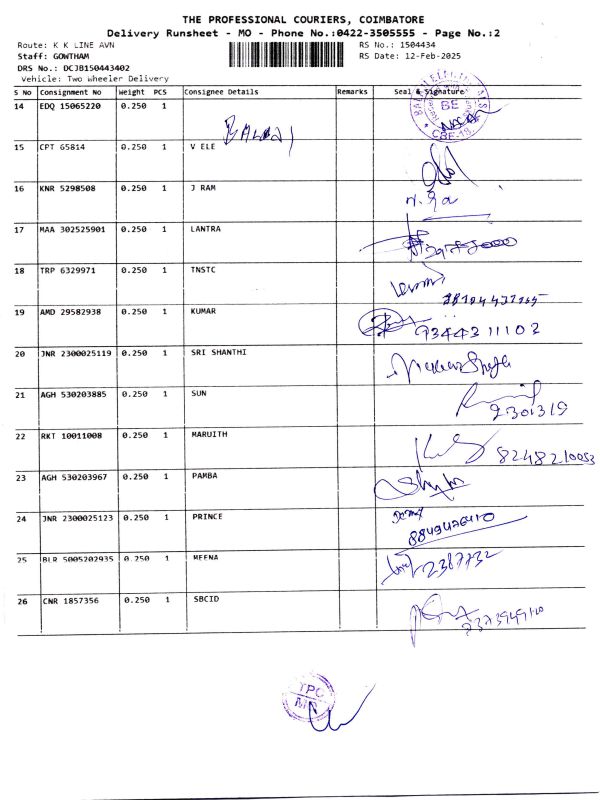 THE PROFESSIONAL COURIERS, COIMBATORE
Delivery Runsheet - MO - Phone No.:0422-3505555 - Page No.:2
Route: K K LINE AVN RS No.: 1504434
Staff: GOWTHAM RS Date: 12-Feb-2025
DRS No.: DCJB150443402
Vehicle: Two Wheeler Delivery
S No Consignment No Weight PCS Consignee Details Remarks Seal & Signature
14 EDQ 15065220 0.250 1
BALAJI
BE
CBE-18
15 CPT 65814 0.250 1 V ELE
16 KNR 5298508 0.250 1 J RAM
17 MAA 302525901 0.250 1 LANTRA
18 TRP 6329971 0.250 1 TNSTC
19 AMD 29582938 0.250 1 KUMAR
9344211102
20 JNR 2300025119 0.250 1 SRI SHANTHI
21 AGH 530203885 0.250 1 SUN
2301319
22 RKT 10011008 0.250 1 MARUITH
8248210053
23 AGH 530203967 0.250 1 PAMBA
24 JNR 2300025123 0.250 1 PRINCE
25 BLR 5005202935 0.250 1 MEENA
2387732
26 CNR 1857356 0.250 1 SBCID
TPC